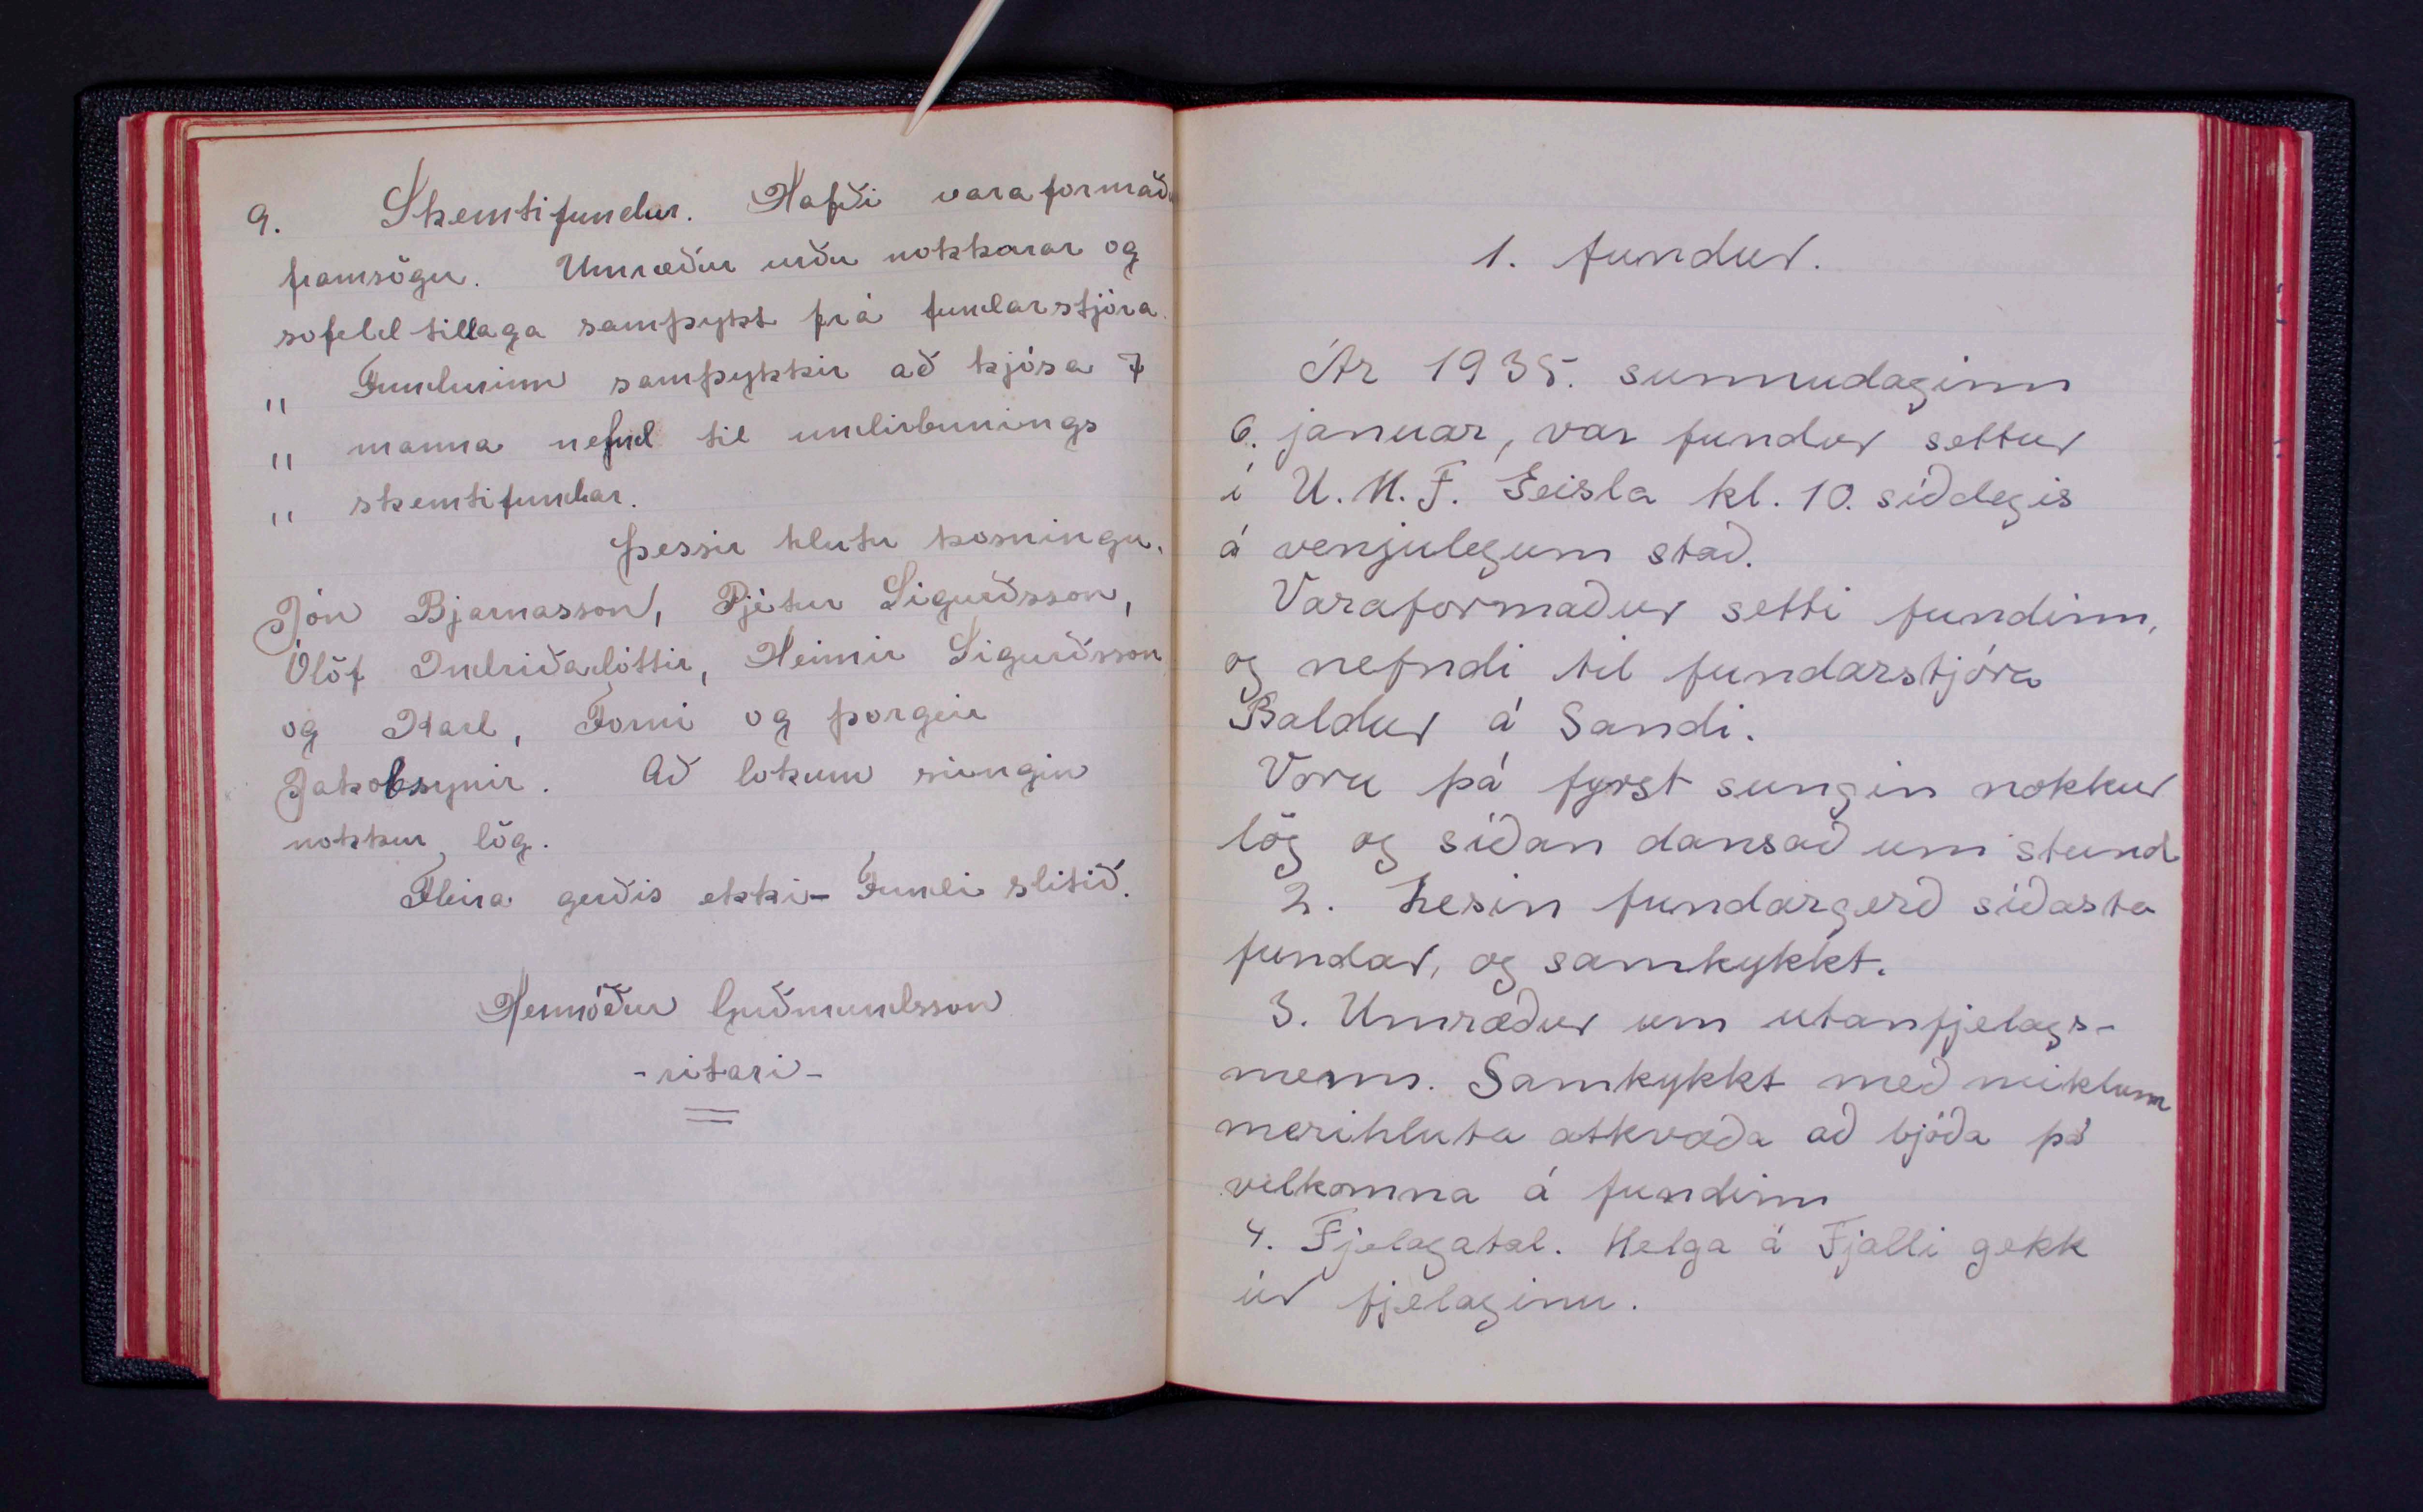 9. Skemtifundur. Hafði varaformað
framsögu. Umræður urðu nokkrar og
sofeld tillaga samþykt frá fundarstjóra.
" Fundurinn samþykkir að kjósa 7
" manna nefnd til undirbunings
" skemtifundar.
Þessir hlutu kosningu.
Jón Bjarnasson, Pjétur Sigurðsson,
Ólöf Indriðadóttir, Heimir Sigurðsson
og Karl, Forni og Þorgeir
Jakobsynir. Að lokum sungin
nokkur lög.
Fleira gerðis ekki - Fundi slitið.
Hermóður Guðmundsson
- ritari -
1. fundur.
Ár 1935. sunnudaginn
6. januar, var fundur settur
í U.M.F. Geisla kl. 10. síðdegis
á venjulegum stað.
Varaformaður setti fundinn,
og nefndi til fundarstjóra
Baldur á Sandi.
Voru þá fyrst sungin nokkur
lög og síðan dansað um stund
2. Lesin fundargerð síðasta
fundar, og samþykkt.
3. Umræður um utanfjelags-
menn. Samþykkt með miklum
merihluta atkvæða að bjóða þá
velkomna á fundinn
4. Fjelagatal. Helga á Fjalli gekk
úr fjelaginu.